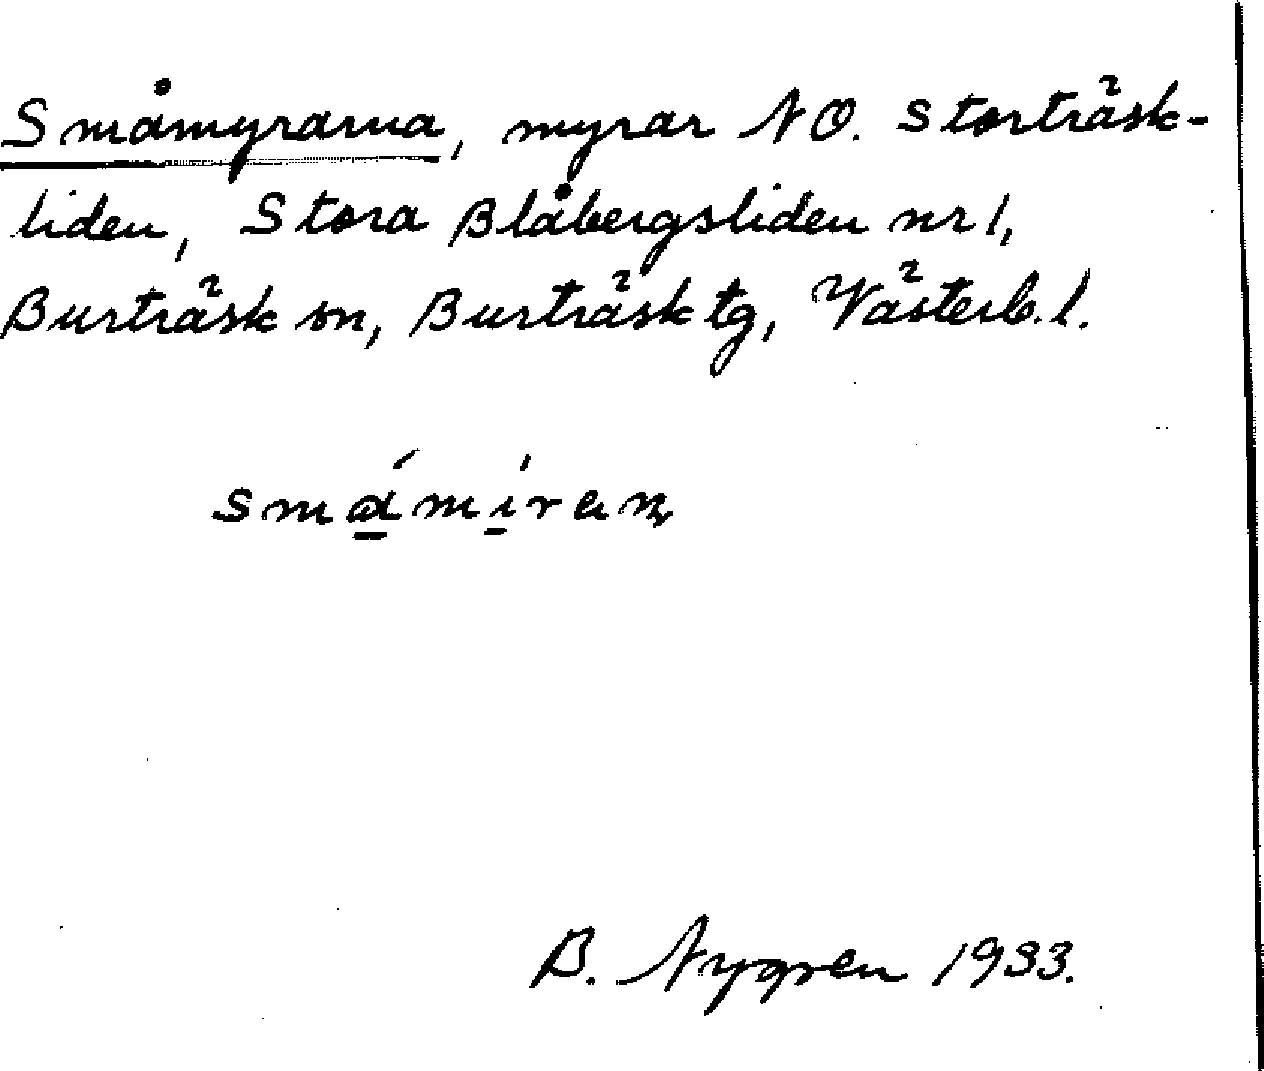 Småmyrarna, myrar NO. Storträsk-
liden, Stora Blåbergsliden nr 1,
Burträsk sn, Burträsk tg, Västerb. l.
B. Nygren 1933.